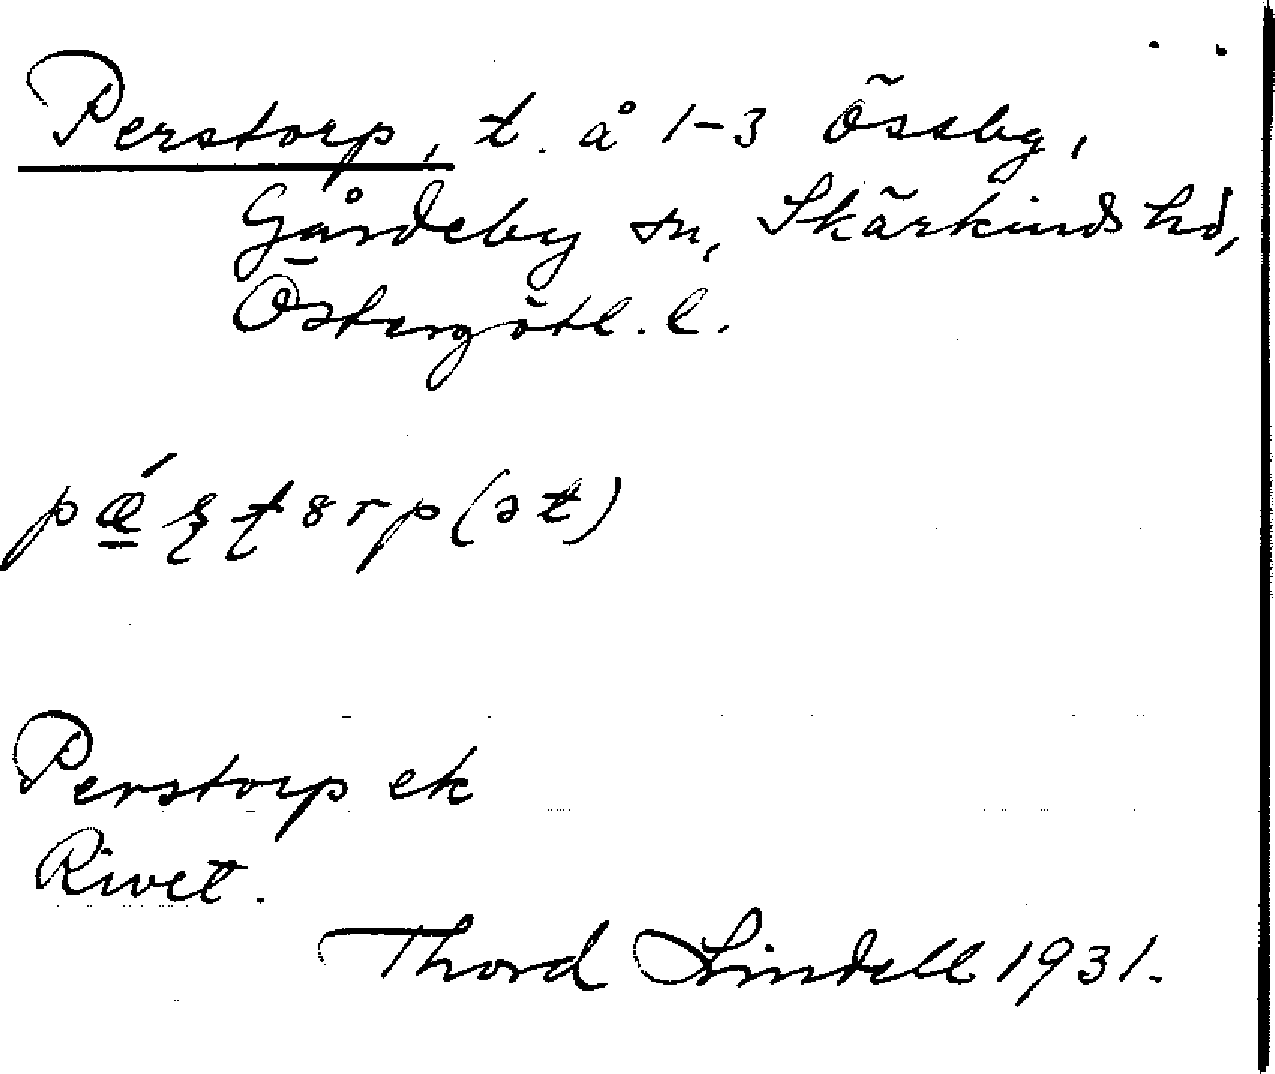 Perstorp, t. å 1-3 Össby,
Gårdeby sn, Skärkinds hd,
Östergötl. l.
Perstorp ek
Rivet.
Thord Lindell 1931.